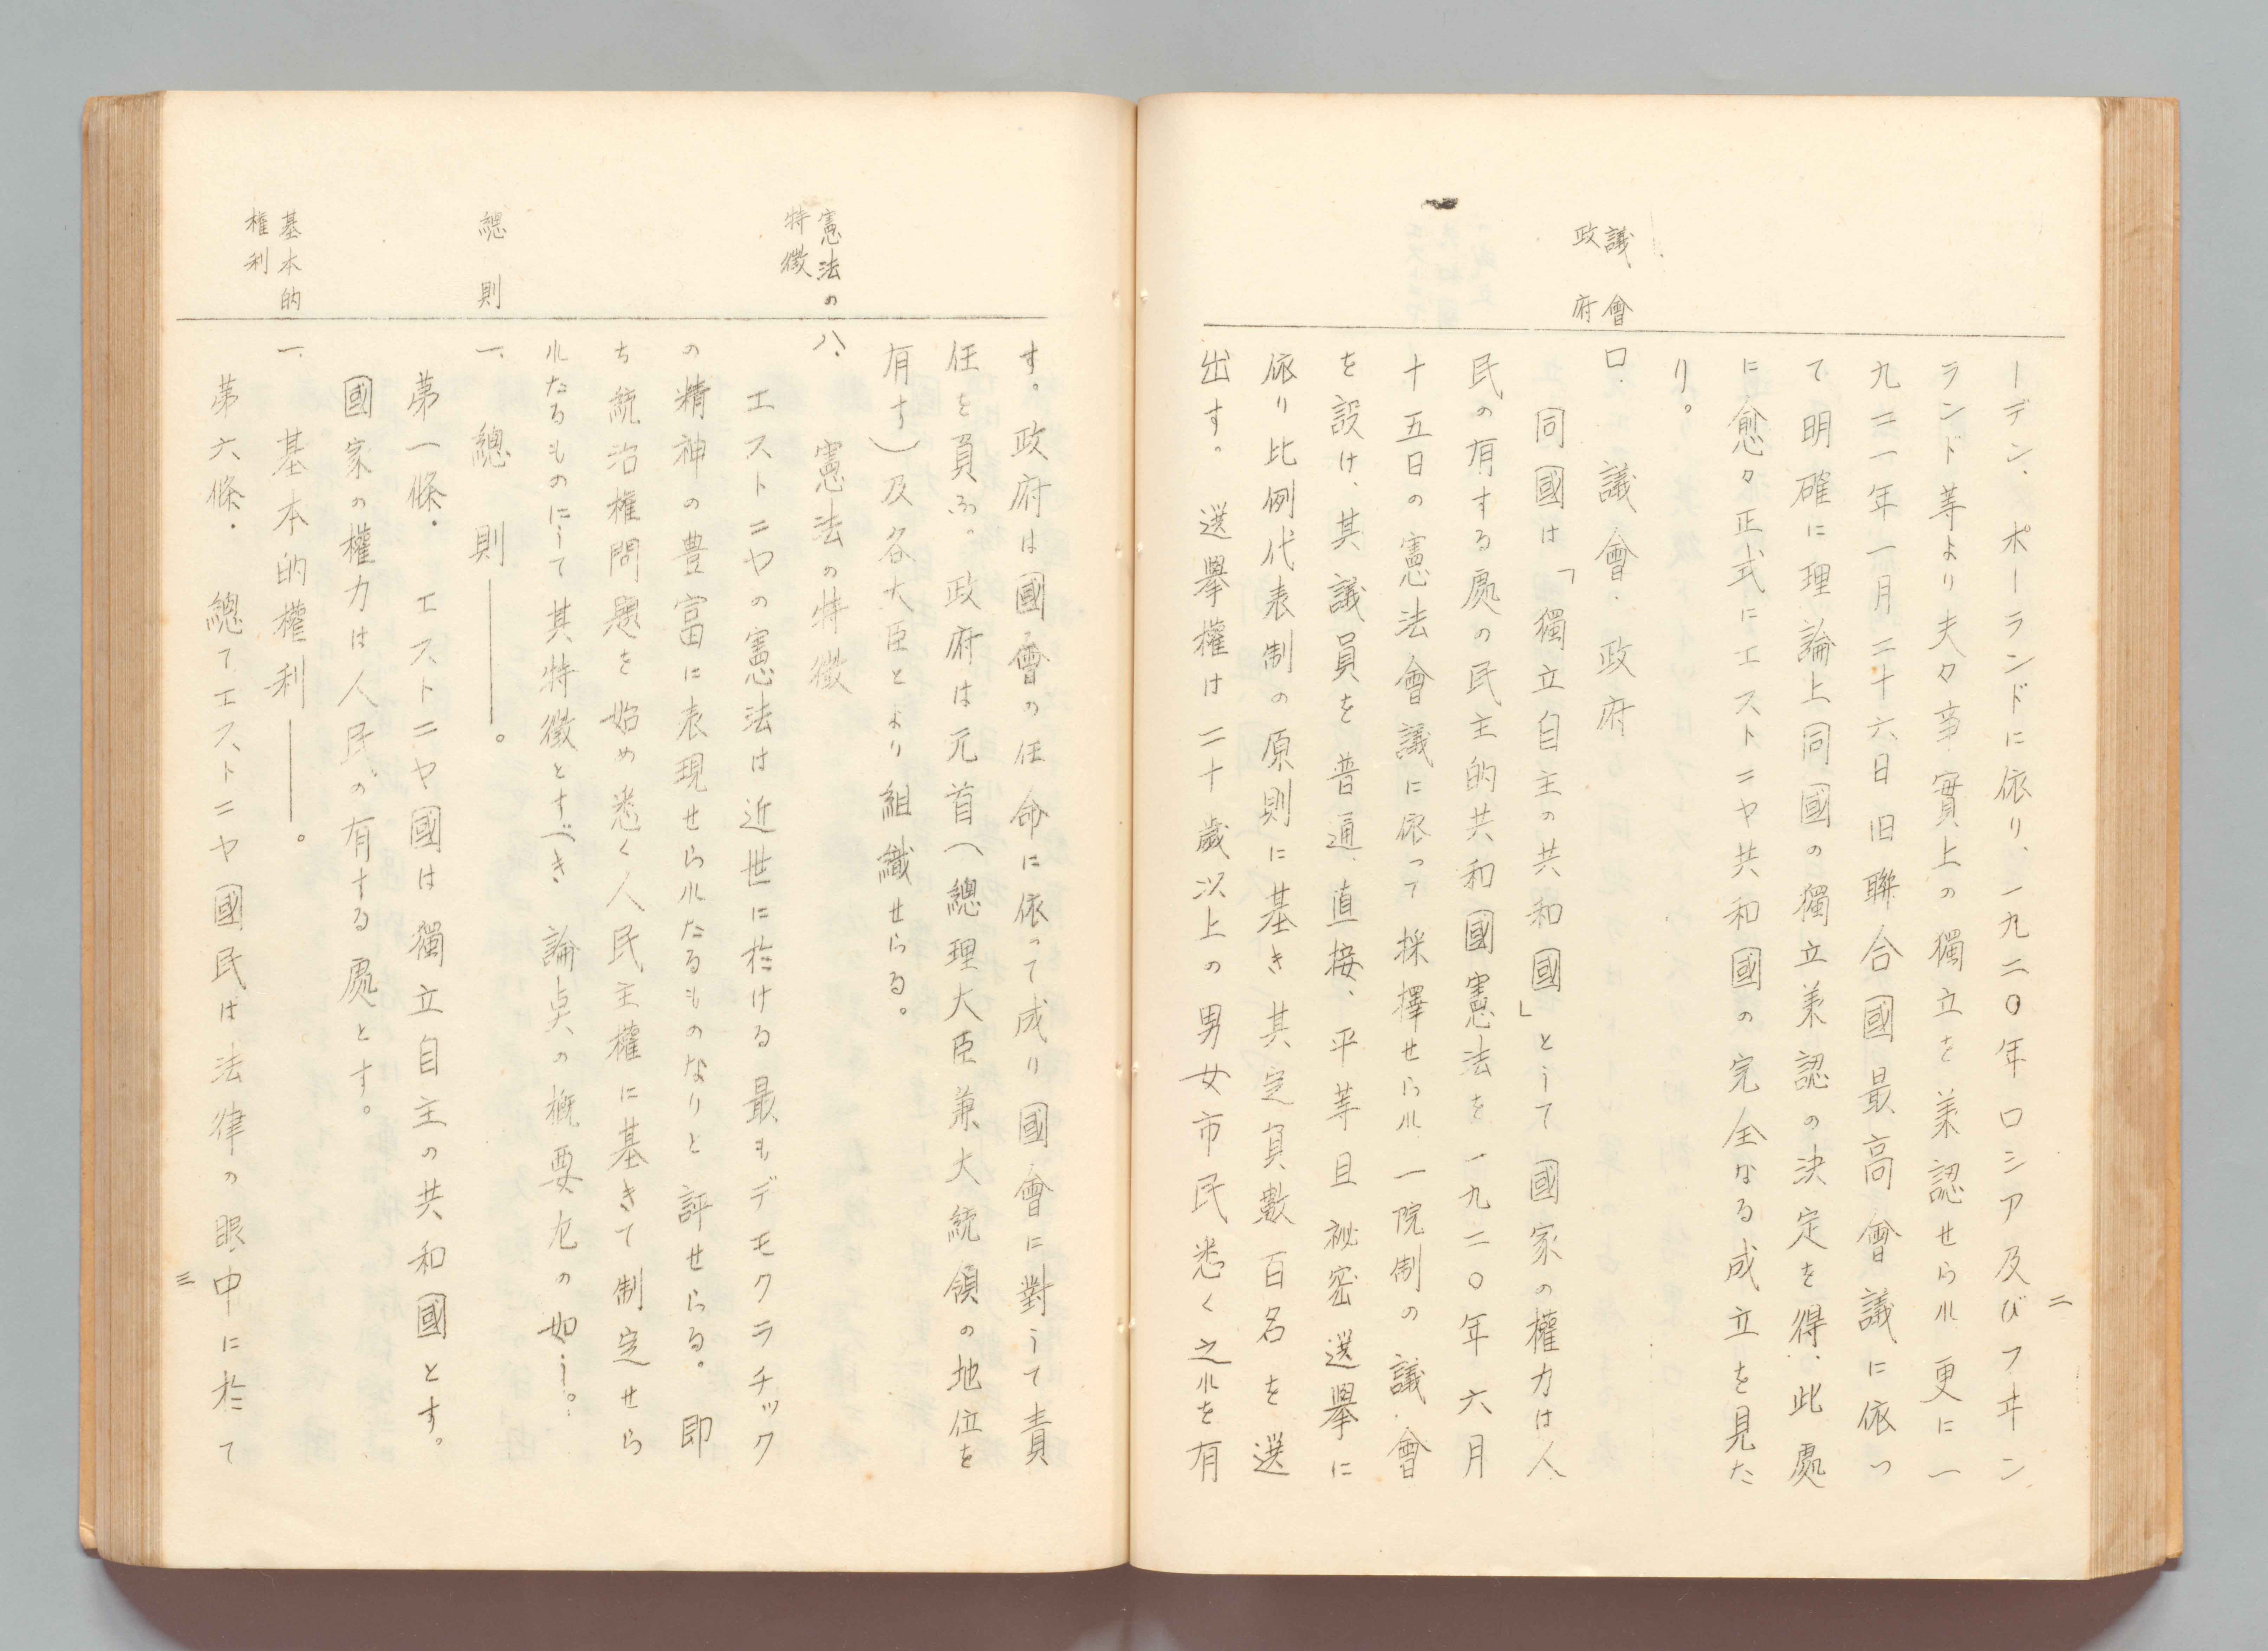 二
ーデン、ポーランドに依り、一九二〇年ロシア及びフヰン
ランド等より夫々事實上の獨立を羕認せられ更に一
九二一年一月二十六日旧聯合國最高會議に依つ
て明確に理論上同國の獨立羕認の決定を得、此處
に愈々正式にエストニヤ共和國の完全なる成立を見た
り。
議會
政府
ロ、議會・政府
同國は「獨立自主の共和國」として國家の權力は人
民の有する處の民主的共和國憲法を一九二〇年六月
十五日の憲法會議に依って採擇せられ一院制の議會
を設け、其議員を普通、直接、平等且祕密選擧に
依り比例代表制の原則に基き其定員數百名を選
出す。選擧權は二十歳以上の男女市民悉く之れを有
す。政府は國會の任命に依って成り國會に對して責
任を負ふ。政府は元首(總理大臣兼大統領の地位を
有す)及各大臣とより組織せらる。
憲法の
特徴
ハ、憲法の特徴
エストニヤの憲法は近世に於ける最もデモクラチック
の精神の豊富に表現せられたるものなりと評せらる。即
ち統治權問題を始め悉く人民主權に基きて制定せら
れたるものにして其特徴とすべき論点の概要左の如し。
總則
一、總則———。
第一條・エストニヤ國は獨立自主の共和國とす。
國家の權力は人民の有する處とす。
基本的
權利
一、基本的權利———。
第六條・總てエストニヤ國民は法律の眼中に於て
三